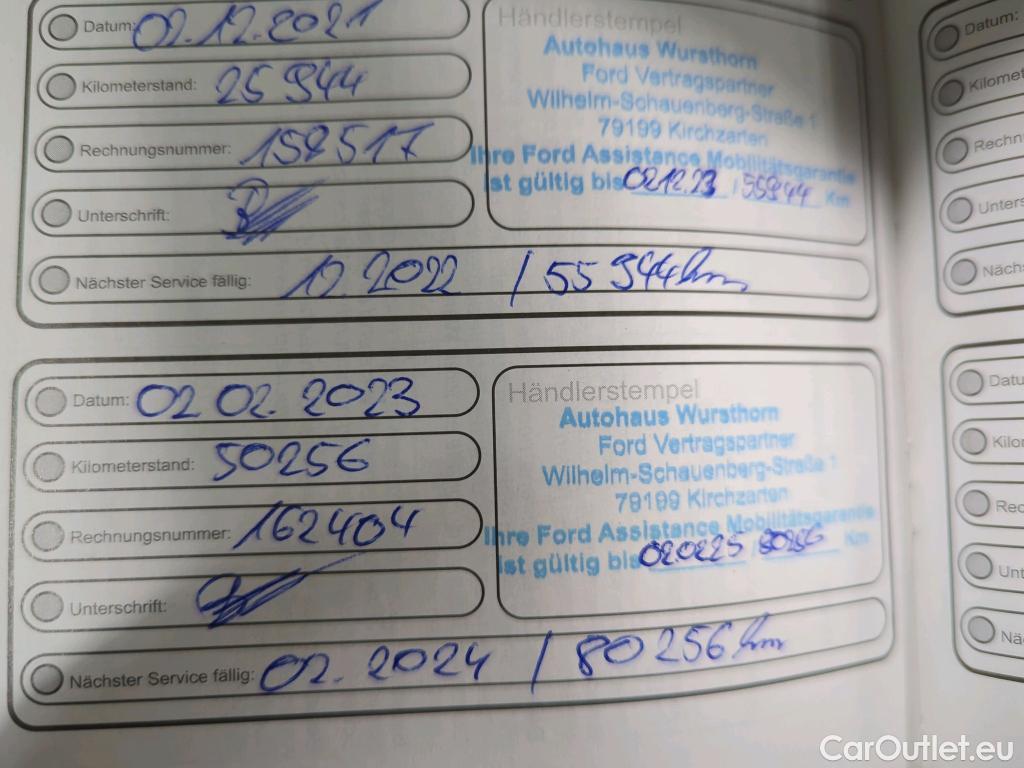 Datum: 02.12.2021
Kilometerstand: 25 944
Rechnungsnummer: 158517
Unterschrift:
Nächster Service fällig: 12. 2022 / 55 944 km
Händlerstempel
Autohaus Wursthorn
Ford Vertragspartner
Wilhelm-Schauenberg-Straße 1
79199 Kirchzarten
Ihre Ford Assistance Mobilitätsgarantie
ist gültig bis 02.12.23 / 55944 Km
Datum: 02 02. 2023
Kilometerstand: 50256
Rechnungsnummer: 162404
Unterschrift:
Nächster Service fällig: 02. 2024 / 80 256 km
Händlerstempel
Autohaus Wursthorn
Ford Vertragspartner
Wilhelm-Schauenberg-Straße 1
79199 Kirchzarten
Ihre Ford Assistance Mobilitätsgarantie
ist gültig bis 02.02.25 / 80256 Km
Datum:
Kilomet
Rechn
Unters
Nächs
Datu
Kilon
Rec
Unt
Nä
CarOutlet.eu